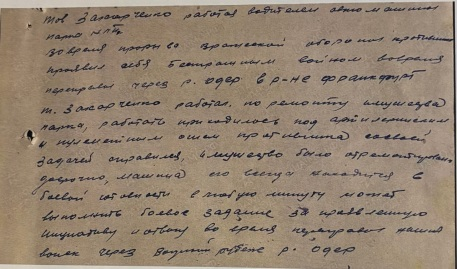 Тов Захарченко работая водителем автомашины
парка
во время прорыва вражеской обороны противника
проявил себя бесстрашным войном во время
переправы через р. Одер в р-не Франкфурт
т. Захарченко работал по ремонту имущества
парка, работать приходилось под артилерийским
и пулеметным огнем противника со своей
задачей справился, имущество было отремонтировано
досрочно, машина его всегда находится в
боевой готовности в любую минуту может
выполнить боевое задание за проявленную
инициативу и отвагу во время переправы наших
войск через р. Одер